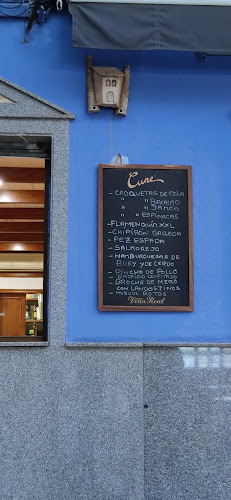 Cune
- CROQUETAS DE COLA
" " BACALAO
" " JAMON
" " ESPINACAS
- FLAMENQUÍN XXL
- CHIPIRÓN GALLEGA
- PEZ ESPADA
- SALMOREJO
- HAMBURGUESAS DE
BUEY Y DE CERDO
- PINCHO DE POLLO
- BACALAO CONFITADO
- BROCHE DE MERO
CON LANGOSTINOS
- HUEVOS ROTOS
Viña Real